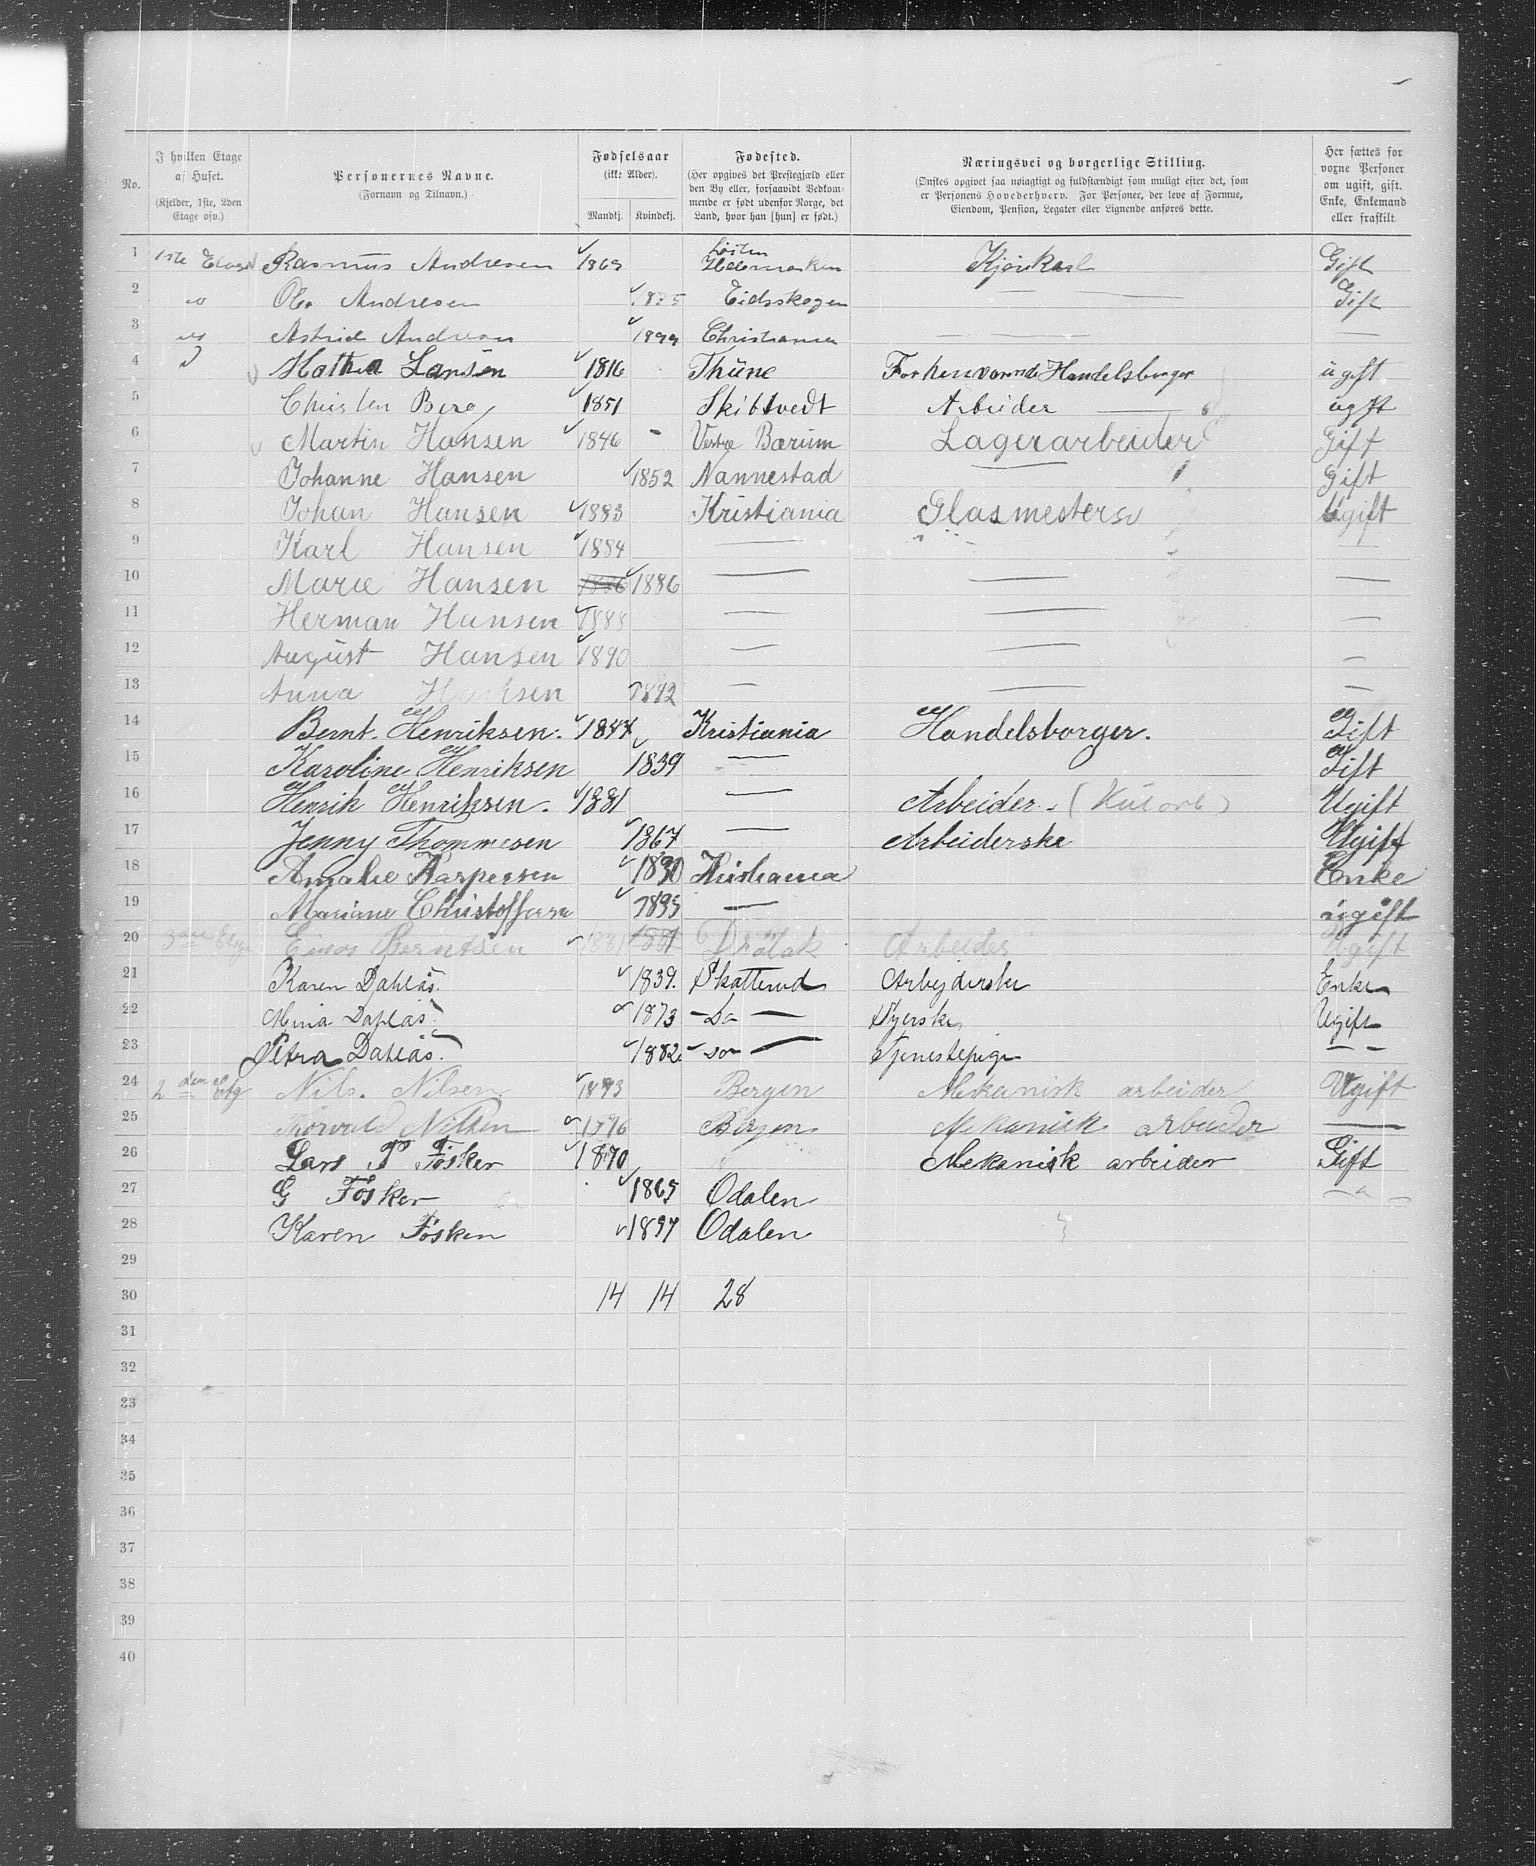 No.
I hvilken Etage af Huset. (Kjelder, 1ste, 2den Etage osv.)
Personernes Navne. (Fornavn og Tilnavn.)
Fødselsaar (ikke Alder). Mandkj. Kvindekj.
Fødested. (Her opgives det Prestegjæld eller den By eller, forsaavidt Vedkommende er født udenfor Norge, det Land, hvor han [hun] er født.)
Næringsvei og borgerlige Stilling. (Ønskes opgivet saa nøiagtigt og fuldstændigt som muligt efter det, som er Personens Hovederhverv. For Personer, der leve af Formue, Eiendom, Pension, Legater eller Lignende anføres dette.)
Her sættes for voxne Personer om ugift, gift, Enke, Enkemand eller fraskilt.
1 1ste Etage Rasmus Andresen 1869 Løiten Hedemarken Kjørekarl Gift
2 " Andresen 1875 Eidsskogen — Gift
3 " Astrid Andresen 1899 Christiania — — —
4 Larsen 1816 Thüne Forhenværende Handelsborger ugift
5 Christen Berg 1851 Skibtvedt Arbeider — ugift
6 Martin Hansen 1846 - Vestre Bærum Lagerarbeider Gift
7 Johanne Hansen 1852 Nannestad — Gift
8 Johan Hansen 1883 Kristiania Glasmester Ugift
9 Karl Hansen 1884 — —
10 Marie Hansen 1886 1886 — — —
11 Herman Hansen 1888 — — —
12 August Hansen 1890 — — —
13 Anna Hansen 1892 — — —
14 Bernt. Henriksen. 1844 Kristiania Handelsborger. Gift
15 Karoline Henriksen 1839 — Gift
16 Henrik Henriksen. 1881 — Arbeider. Ugift
17 Jenny Thommesen 1867 — Arbeiderske Ugift
18 Amalie Kaspersen 1830 Kristiania Enke
19 Mariane Christoffersen 1895 — ugift
20 Berntsen 1881 1881 Drøbak Arbeider Ugift
21 Karen Dahlås. 1839. Skatterud Arbejderske Enke
22 Mina Dahlås. 1873 - Do — Syerske Ugift
23 Petra Dahlås. 1882 - Do — Tjenestepige — —
24 2den Etg Nils. Nilsen 1873 Bergen Mekanisk arbeider Ugift
25 Thorvald Nilsen 1876 Bergen Mekanisk arbeider —
26 Lars P Fosker 1870 Mekanisk arbeider Gift
27 G Fosker 1865 Odalen
28 Karen Fosken 1897 Odalen
29
30 14 14 28
31
32
33
34
35
36
37
38
39
40